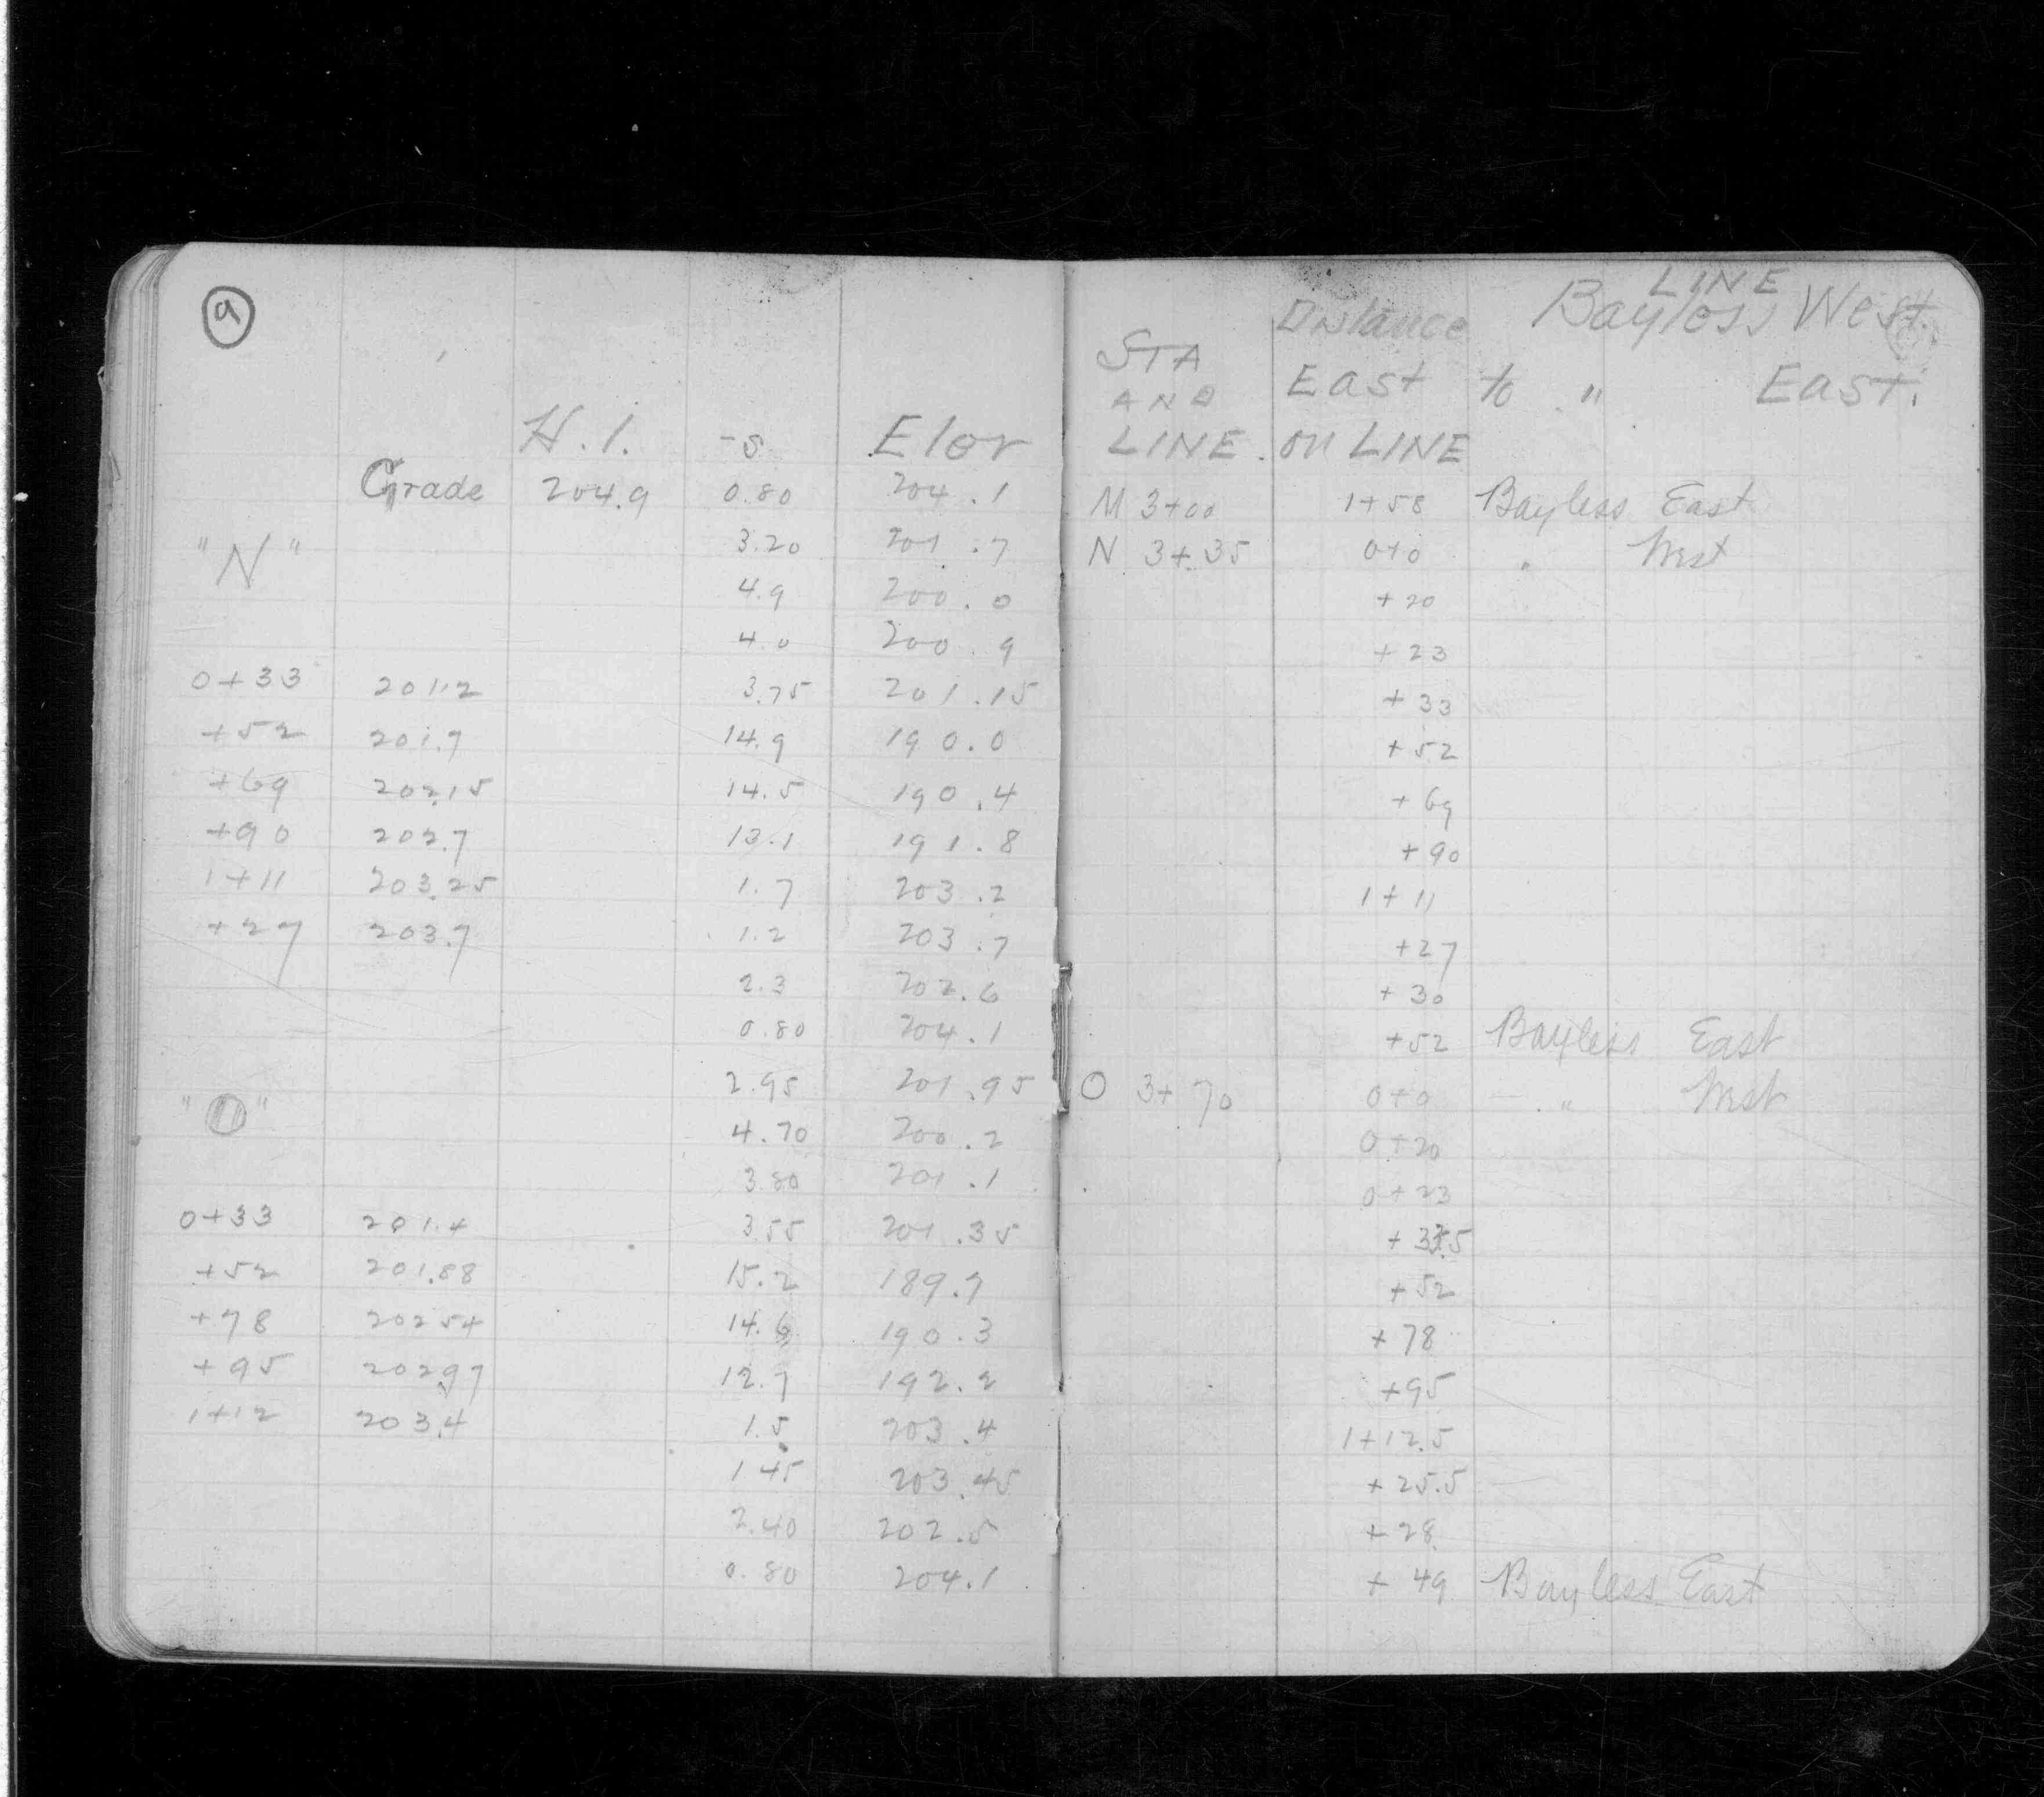 9
H.I. -S Elev
Grade 204.9 0.80 204.1
"N" 3.20 201.7
4.9 200.0
4.0 200.9
0+33 201.2 3.75 201.15
+52 201.7 14.9 190.0
+69 202.15 14.5 190.4
+90 202.7 13.1 191.8
1+11 203.25 1.7 203.2
+27 203.7 1.2 203.7
2.3 202.6
0.80 204.1
2.95 201.95
"O" 4.70 200.2
3.80 201.1
0+33 201.4 3.55 201.35
+52 201.88 15.2 189.7
+78 202 54 14.6 190.3
+95 202.97 12.7 192.2
1+12 203.4 1.5 203.4
1 45 203.45
2.40 202.5
0.80 204.1
LINE
Distance Bayless West.
STA
AND East to " East.
LINE. on LINE
M 3+00 1+58 Bayless East
N 3+35 0+0 " West
+20
+23
+33
+52
+69
+90
1+11
+27
+30
+52 Bayless East
O 3+70 0+0 " West
0+20
0+23
+33.5
+52
+78
+95
1+12.5
+25.5
+28
+49 Bayless East